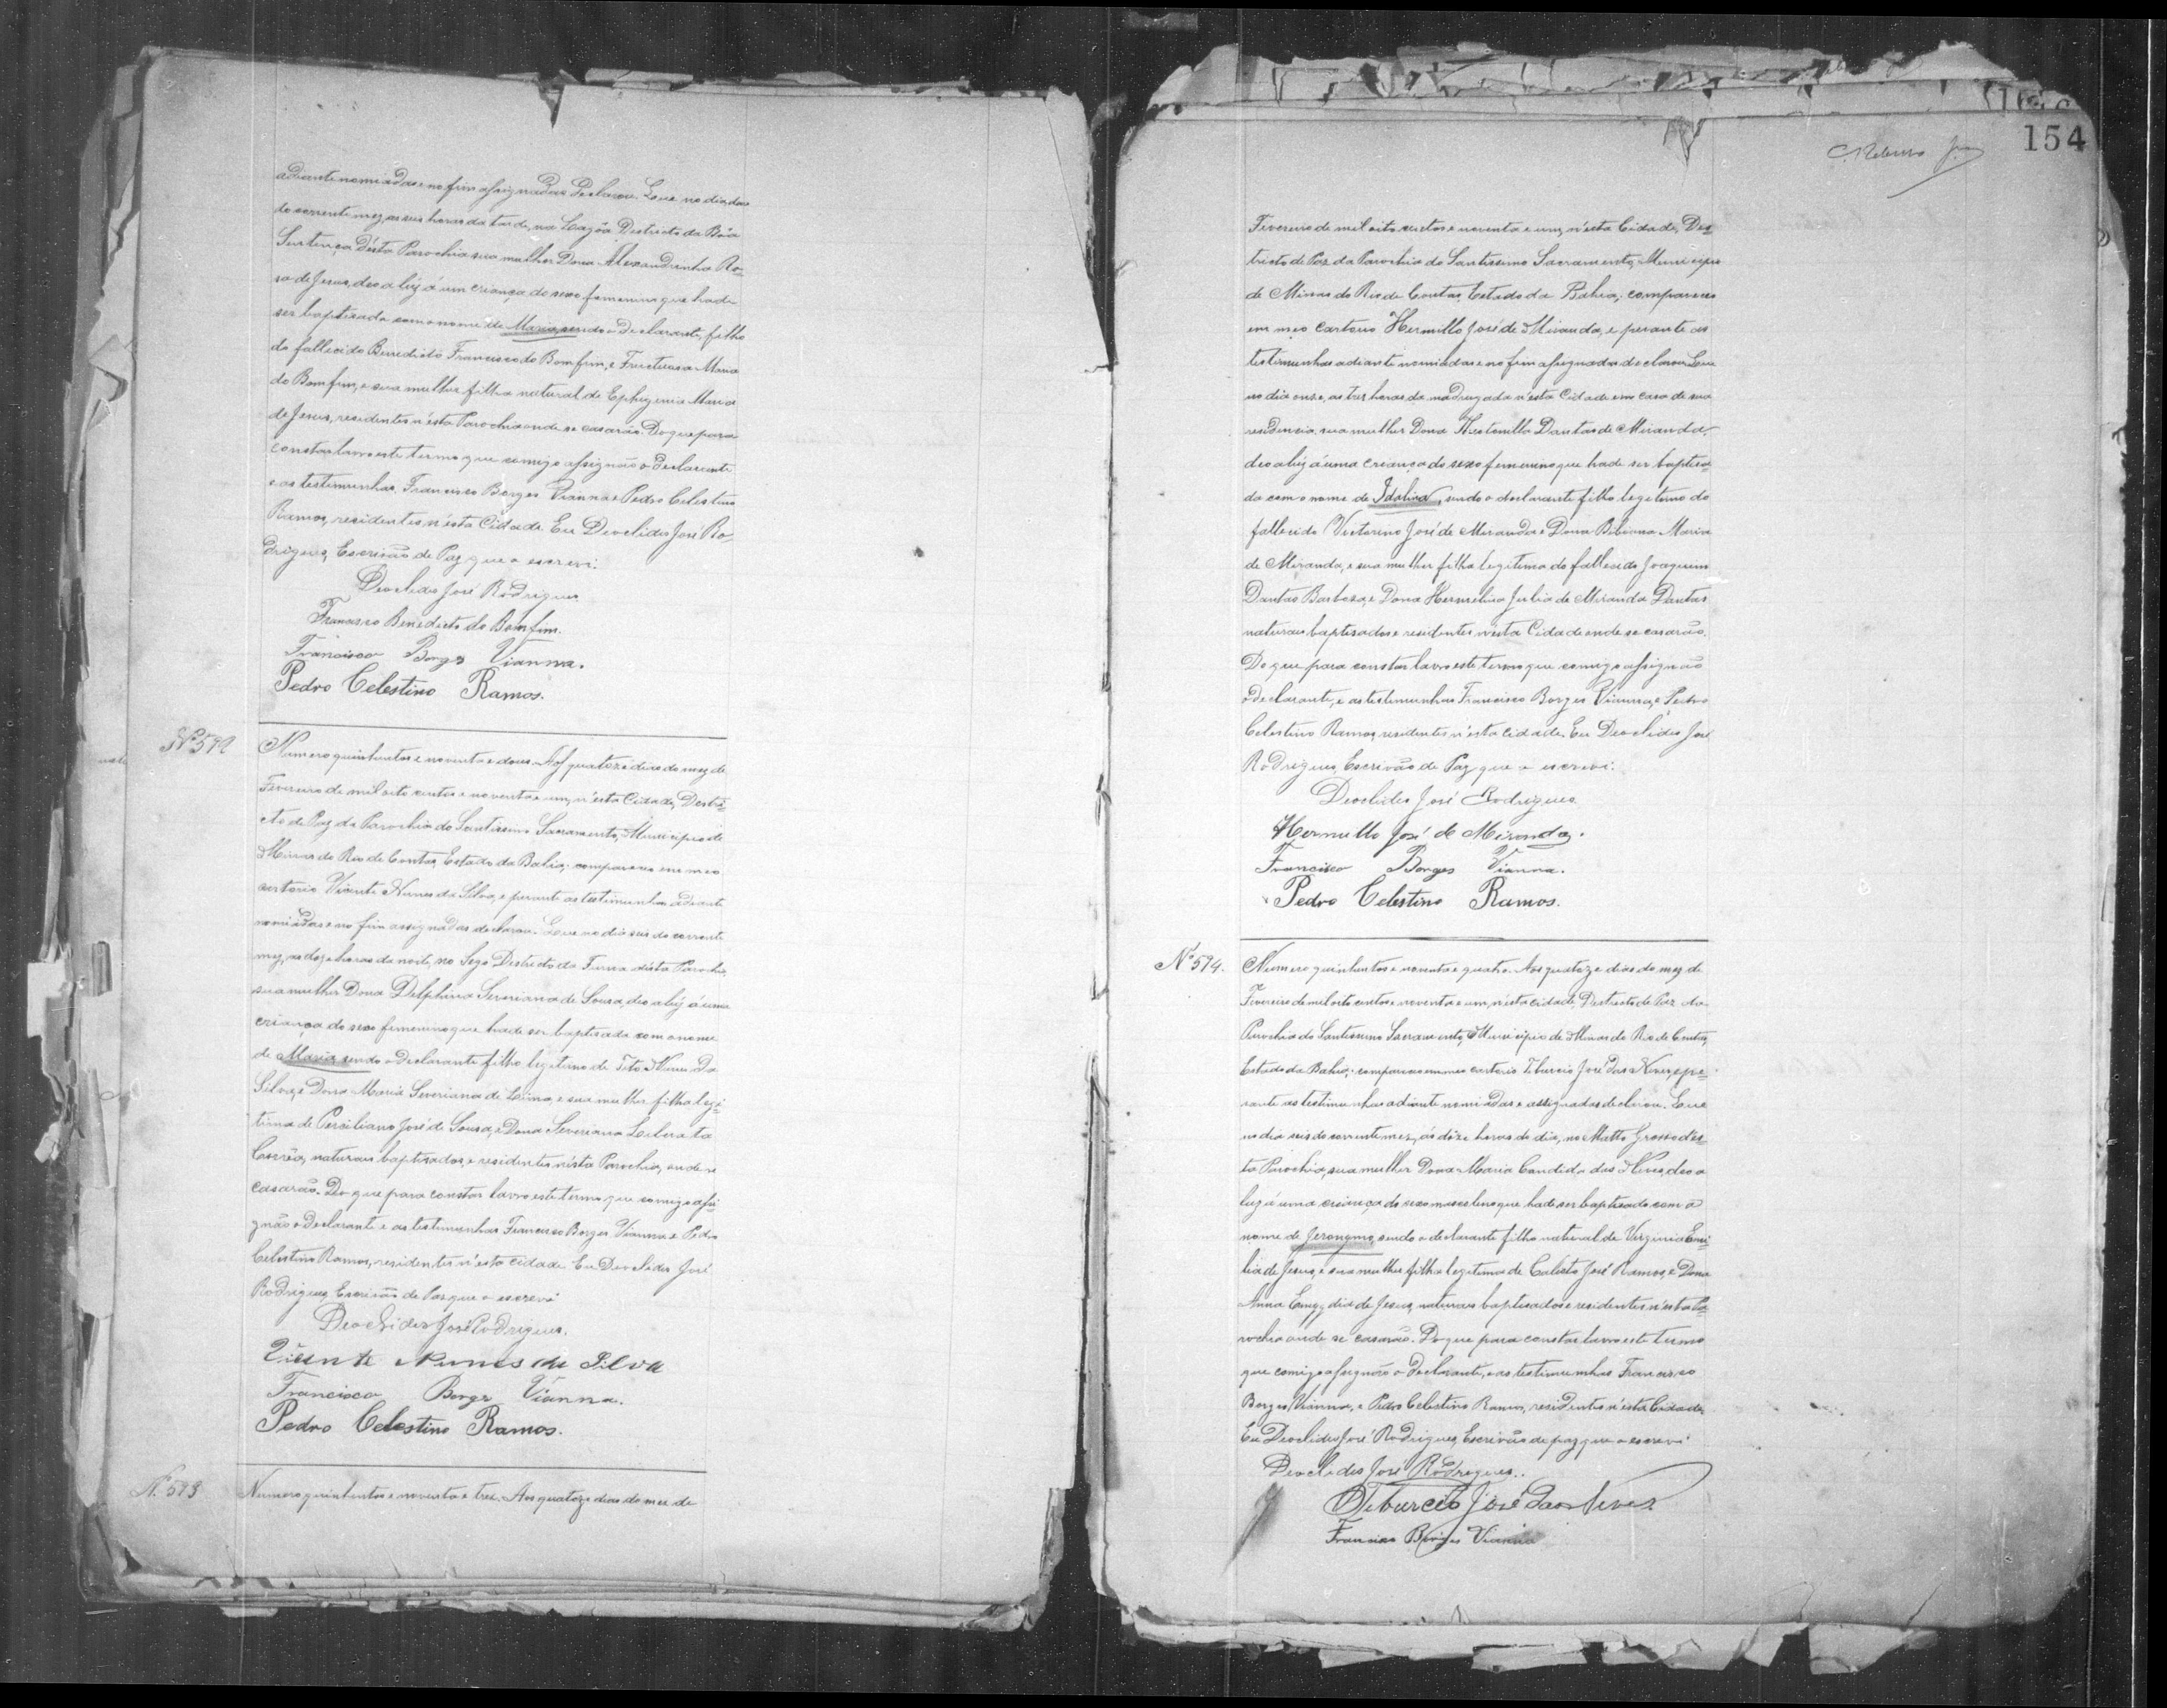 adiante nomiadas e no fim assignadas declarou. Que no dia dois
do corrente mez, as seis horas da tarde, na Lagôa Destricto da Bôa
Sentença d'ésta Parochia sua mulher Dona Alexandrinha Ro-
sa de Jesus, deo a luz á um criança do sexo femenino que hade
ser baptisada com o nome de Maria, sendo o declarante, filho
do fallecido Benedicto Francisco do Bomfim, e Fructuosa Maria
do Bomfim, e sua mulher filha natural de Ephigenia Maria
de Jesus, residentes n'ésta Parochia onde se casarão. Do que para
constar lavro este termo que comigo assignão o declarante
e as testimunhas, Francisco Borges Vianna e Pedro Celestino
Ramos, residentes n'ésta Cidade. Eu Deoclides José Ro-
drigues, Escrivão de Paz que o escrevi.
Deoclides José Rodrigues
Francisco Benedicto do Bomfim.
Francisco Borges Vianna.
Pedro Celestino Ramos.
Nº 592
Numero quinhentos e noventa e dous. Aos quatorze dias do mez de
Fevereiro de mil oito centos e noventa e um, n'ésta Cidade, Destri-
cto de Paz da Parochia do Santissimo Sacramento, Municipio de
Minas do Rio de Contas, Estado da Bahia; compareceo em meo
cartorio Vicente Nunes da Silva, e perante as testimunhas adiante
nomiadas e no fim assignadas declarou. Que no dia seis do corrente
mez, as doze horas da noite, no Sego Destricto da Furna d'ésta Parochia,
sua mulher Dona Delphina Severiana de Sousa, deo a luz á uma
criança do sexo femenino que hade ser baptisada com o nome
de Maria sendo o declarante filho legitimo de Tito Nunes da
Silva, e Dona Maria Severiana de Lima, e sua mulher filha legi-
tima de Perciliano José de Sousa, e Dona Severiana Liberata
Corrêa, naturaes baptisados, e residentes n'ésta Parochia, onde se
casarão. Do que para constar lavro este termo que comigo assi-
gnão o declarante e as testimunhas Francisco Borges Vianna e Pedro
Celestino Ramos, residentes n'ésta Cidade. Eu Deoclides José
Rodrigues, Escrivão de Paz que o escrevi
Deoclides José Rodrigues.
Vicente Nunes da Silva
Francisco Borges Vianna.
Pedro Celestino Ramos.
N. 593
Numero quinhentos e noventa e tres. Aos quatorze dias do mez de
154
Fevereiro de mil oito centos e noventa e um, n'ésta Cidade, Des-
tricto de Paz da Parochia do Santissimo Sacramento, Municipio
de Minas do Rio de Contas, Estado da Bahia; compareceo
em meo cartorio Hermillo José de Miranda, e perante as
testimunhas adiante nomiadas e no fim assignadas declarou. Que
no dia onze, as tres horas da madrugada n'ésta Cidade em casa de sua
residencia, sua mulher Dona Dantas de Miranda,
deo a luz á uma criança do sexo femenino que hade ser baptisa-
da com o nome de Idalina, sendo o declarante filho legitimo do
fallecido Victorino José de Miranda e Dona Bibiana Maria
de Miranda, e sua mulher filha legitima do fallecido Joaquim
Dantas Barbosa, e Dona Hermelina Julia de Miranda Dantas
naturaes baptisados e residentes n'ésta Cidade onde se casarão.
Do que para constar lavro este termo que comigo assignão
o declarante, e as testimunhas Francisco Borges Vianna, e Pedro
Celestino Ramos, residentes n'ésta Cidade. Eu Deoclides José
Rodrigues, Escrivão de Paz que o escrevi.
Deoclides José Rodrigues
Hermillo José de Miranda.
Francisco Borges Vianna.
Pedro Celestino Ramos.
Nº 594.
Numero quinhentos e noventa e quatro. Aos quatorze dias do mez de
Fevereiro de mil oito centos e noventa e um, n'ésta cidade, Destricto de Paz da
Parochia do Santissimo Sacramento, Municipio de Minas do Rio de Contas,
Estado da Bahia; compareceo em meo cartorio Tiburcio José das Neves, e pe-
rante as testimunhas adiante nomiadas e assignadas declarou. Que
no dia seis do corrente mez, ás doze horas do dia, no Matto Grosso d'es-
ta Parochia, sua mulher Dona Maria Candida das Neves, deo a
luz á uma criança do sexo masculino que hade ser baptisado com o
nome de Jeronymo, sendo o declarante filho natural de Virginia Emi-
lia de Jesus, e sua mulher filha legitima de Calixto José Ramos, e Dona
Anna Emygdia de Jesus, naturaes baptisados e residentes n'ésta Pa-
rochia onde se casarão. Do que para constar lavro este termo
que comigo assignão o declarante, e as testimunhas Francisco
Borges Vianna, e Pedro Celestino Ramos, residentes n'ésta Cidade.
Eu Deoclides José Rodrigues, Escrivão de paz que o escrevi
Deoclides José Rodrigues.
Tiburcio José das Neves
Francisco Borges Vianna